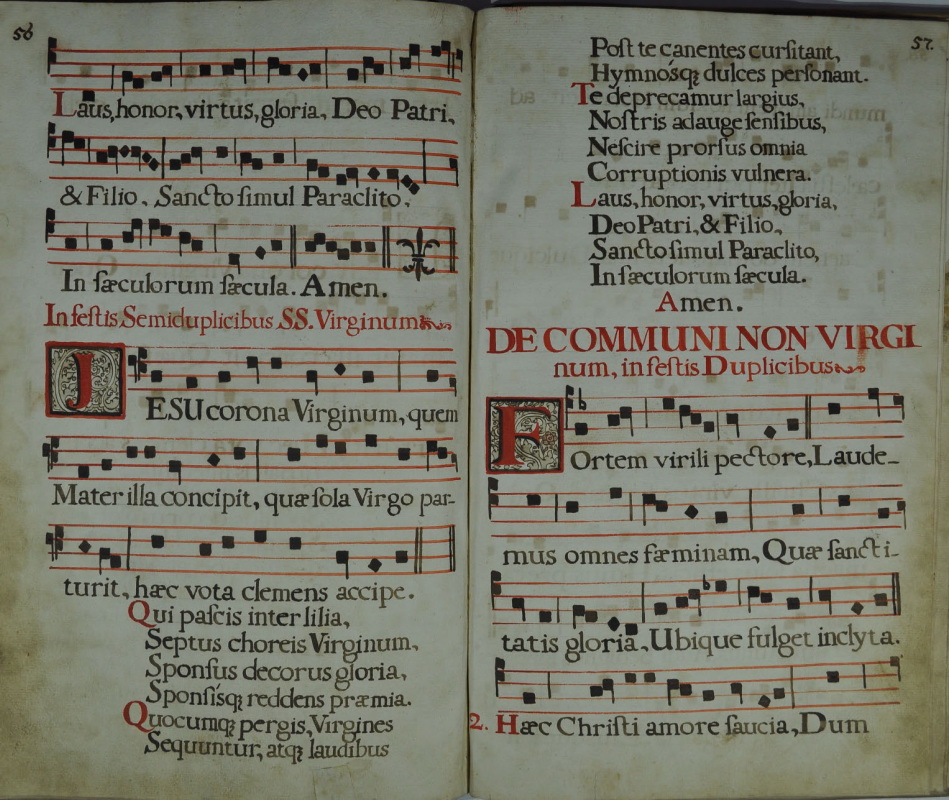 56
Laus, honor, virtus, gloria, Deo Patri,
& Filio, Sancto simul Paraclito,
In sæculorum sæcula. Amen.
In festis Semiduplicibus SS. Virginum
JESU corona Virginum, quem
Mater illa concipit, quæ sola Virgo par-
turit, hæc vota clemens accipe.
Qui pascis inter lilia,
Septus choreis Virginum,
Sponsus decorus gloria,
Sponsísqꝫ reddens præmia.
Quocumqꝫ pergis, Virgines
Sequuntur, atqꝫ laudibus
57.
Post te canentes cursitant,
Hymnósqꝫ dulces personant.
Te deprecamur largius,
Nostris adauge sensibus,
Nescire prorsus omnia
Corruptionis vulnera.
Laus, honor, virtus, gloria,
Deo Patri, & Filio,
Sancto simul Paraclito,
In sæculorum sæcula.
Amen.
DE COMMUNI NON VIRGI
num, in festis Duplicibus
FOrtem virili pectore, Laude-
mus omnes fæminam, Quæ sancti-
tatis gloria, Ubique fulget inclyta.
2. Hæc Christi amore saucia, Dum